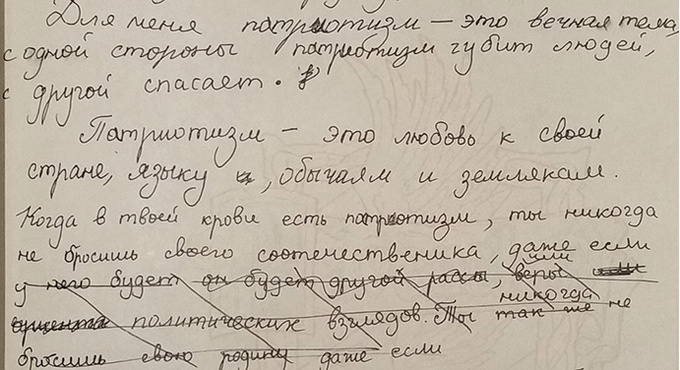 Для меня патриотизм – это вечная тема,
с одной стороны патриотизм губит людей,
с другой спасает.
Патриотизм – это любовь к своей
стране, языку, обычаям и землякам.
Когда в твоей крови есть патриотизм, ты никогда
не бросишь своего соотечественика, даже если
у него будет он будет другой расы, веры или
политических взглядов. Ты так же никогда не
бросишь свою родину даже если